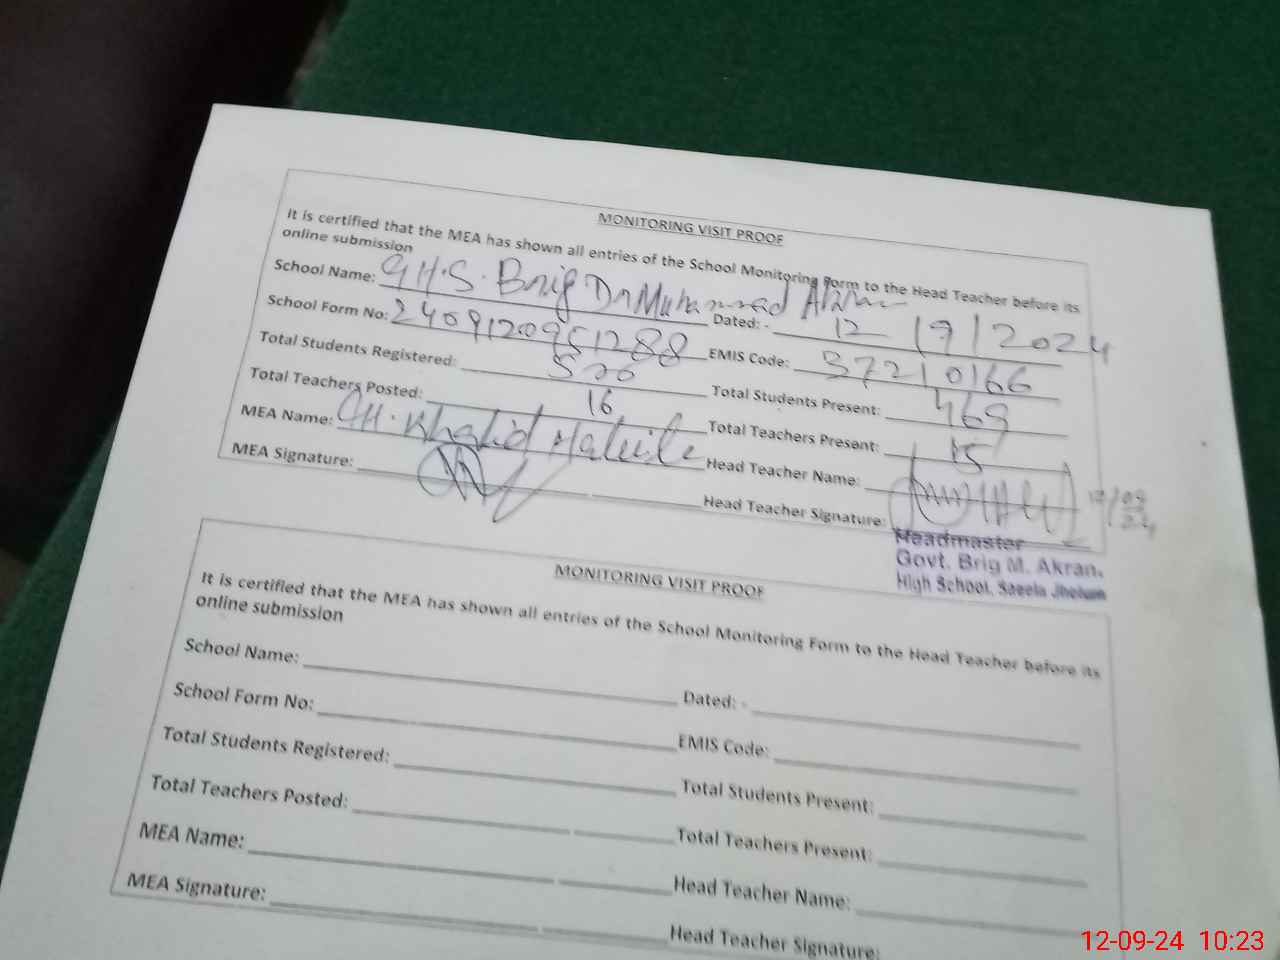 MONITORING VISIT PROOF
It is certified that the MEA has shown all entries of the School Monitoring Form to the Head Teacher before its
online submission
School Name: G.H.S. Brig Dr Muhammad
Dated: - 12/9/2024
School Form No: 2409120951288
EMIS Code: 37210166
Total Students Registered: 526
Total Students Present: 469
Total Teachers Posted: 16
Total Teachers Present: 15
MEA Name: CH. Khalid
Head Teacher Name:
MEA Signature:
Head Teacher Signature:
12/09
24
Headmaster
Govt. Brig M. Akran.
High School, Saeela Jhelum
MONITORING VISIT PROOF
It is certified that the MEA has shown all entries of the School Monitoring Form to the Head Teacher before its
online submission
School Name:
Dated: -
School Form No:
EMIS Code:
Total Students Registered:
Total Students Present:
Total Teachers Posted:
Total Teachers Present:
MEA Name:
Head Teacher Name:
MEA Signature:
Head Teacher Signature:
12-09-24 10:23